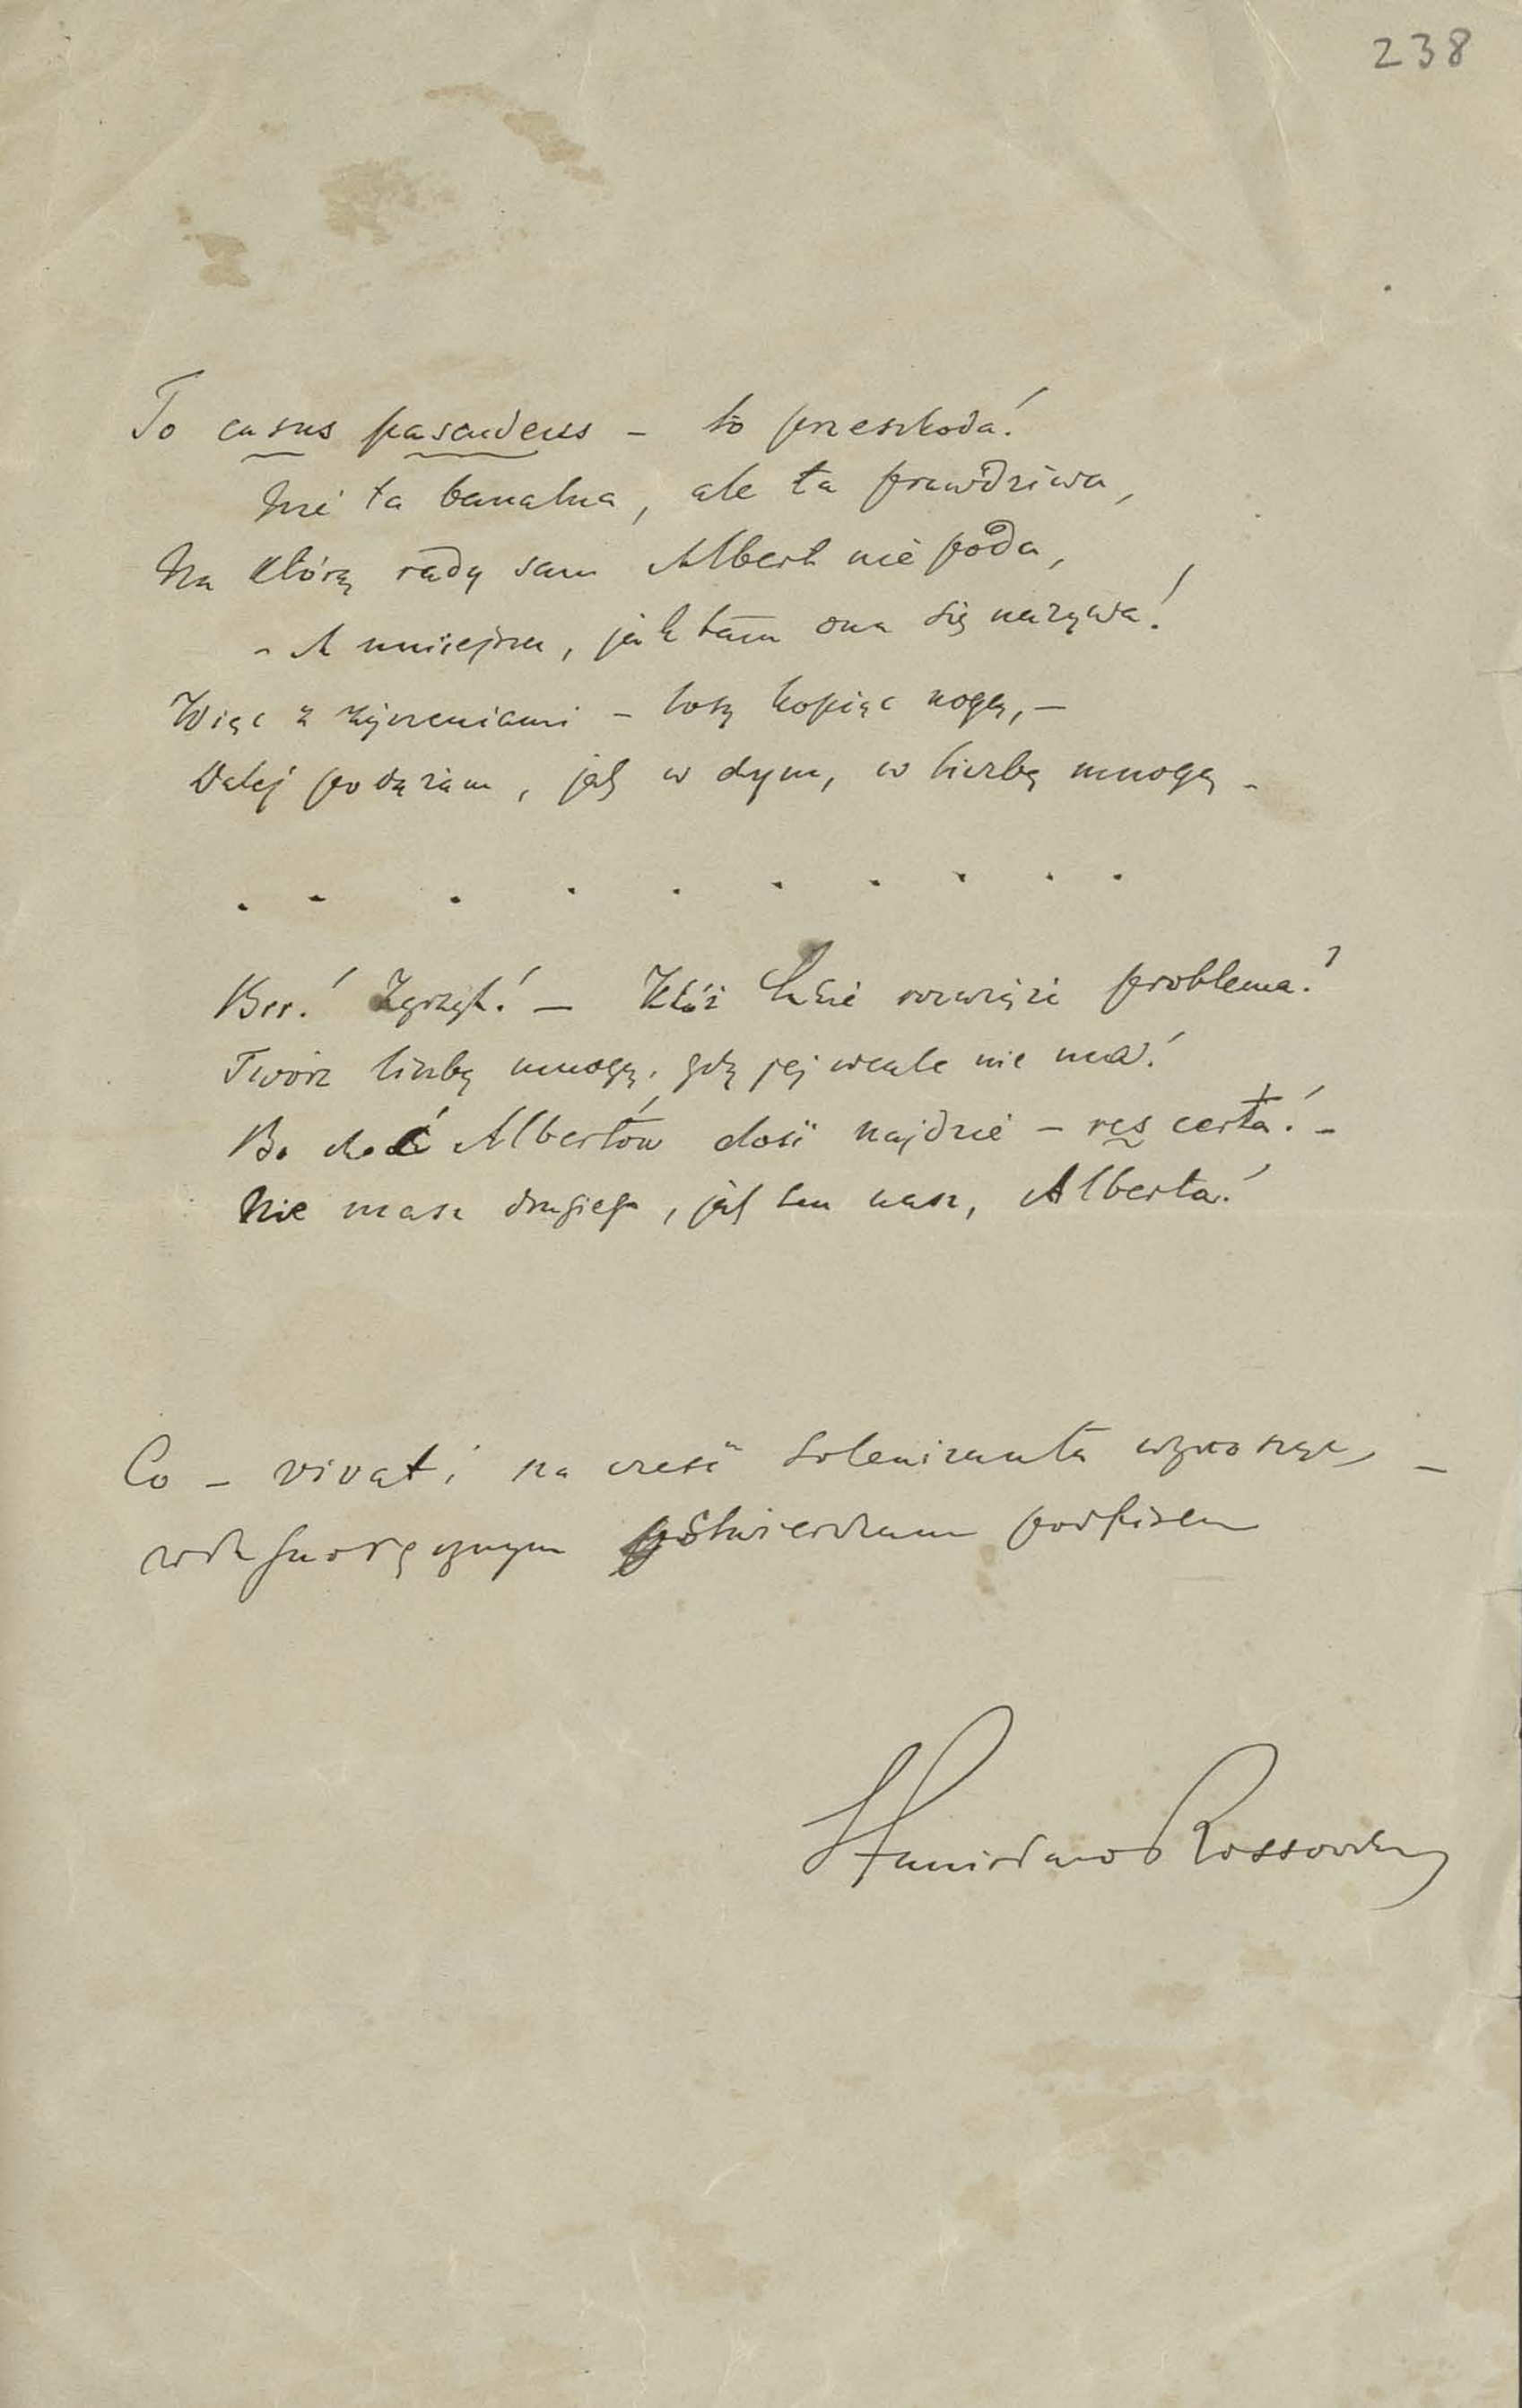 238
To casus pasaudens – to przeszkoda!
Nie ta banalna, ale ta prawdziwa,
Na którą rady sam Albert nie poda,
– A mniejsza, jak tam ona się nazywa!
Więc z życzeniami – losy kopiąc nogą, –
Dalej podążam, jak w dym, w liczbę mnogą –
. . . . . . . . . .
Brr! Zgrzyt! – Któż Łakie rozwiąże problema?
Twórz liczbę mnogą, gdy jej wcale nie ma!
Bo choć Albertów dość najdzie – res certa! –
Nie masz drugiego, jak ten nasz, Alberta!
Co – vivat! na cześć Solenizanta wznosząc, –
własnoręcznym potwierdzam podpisem
Stanisław Rossowski